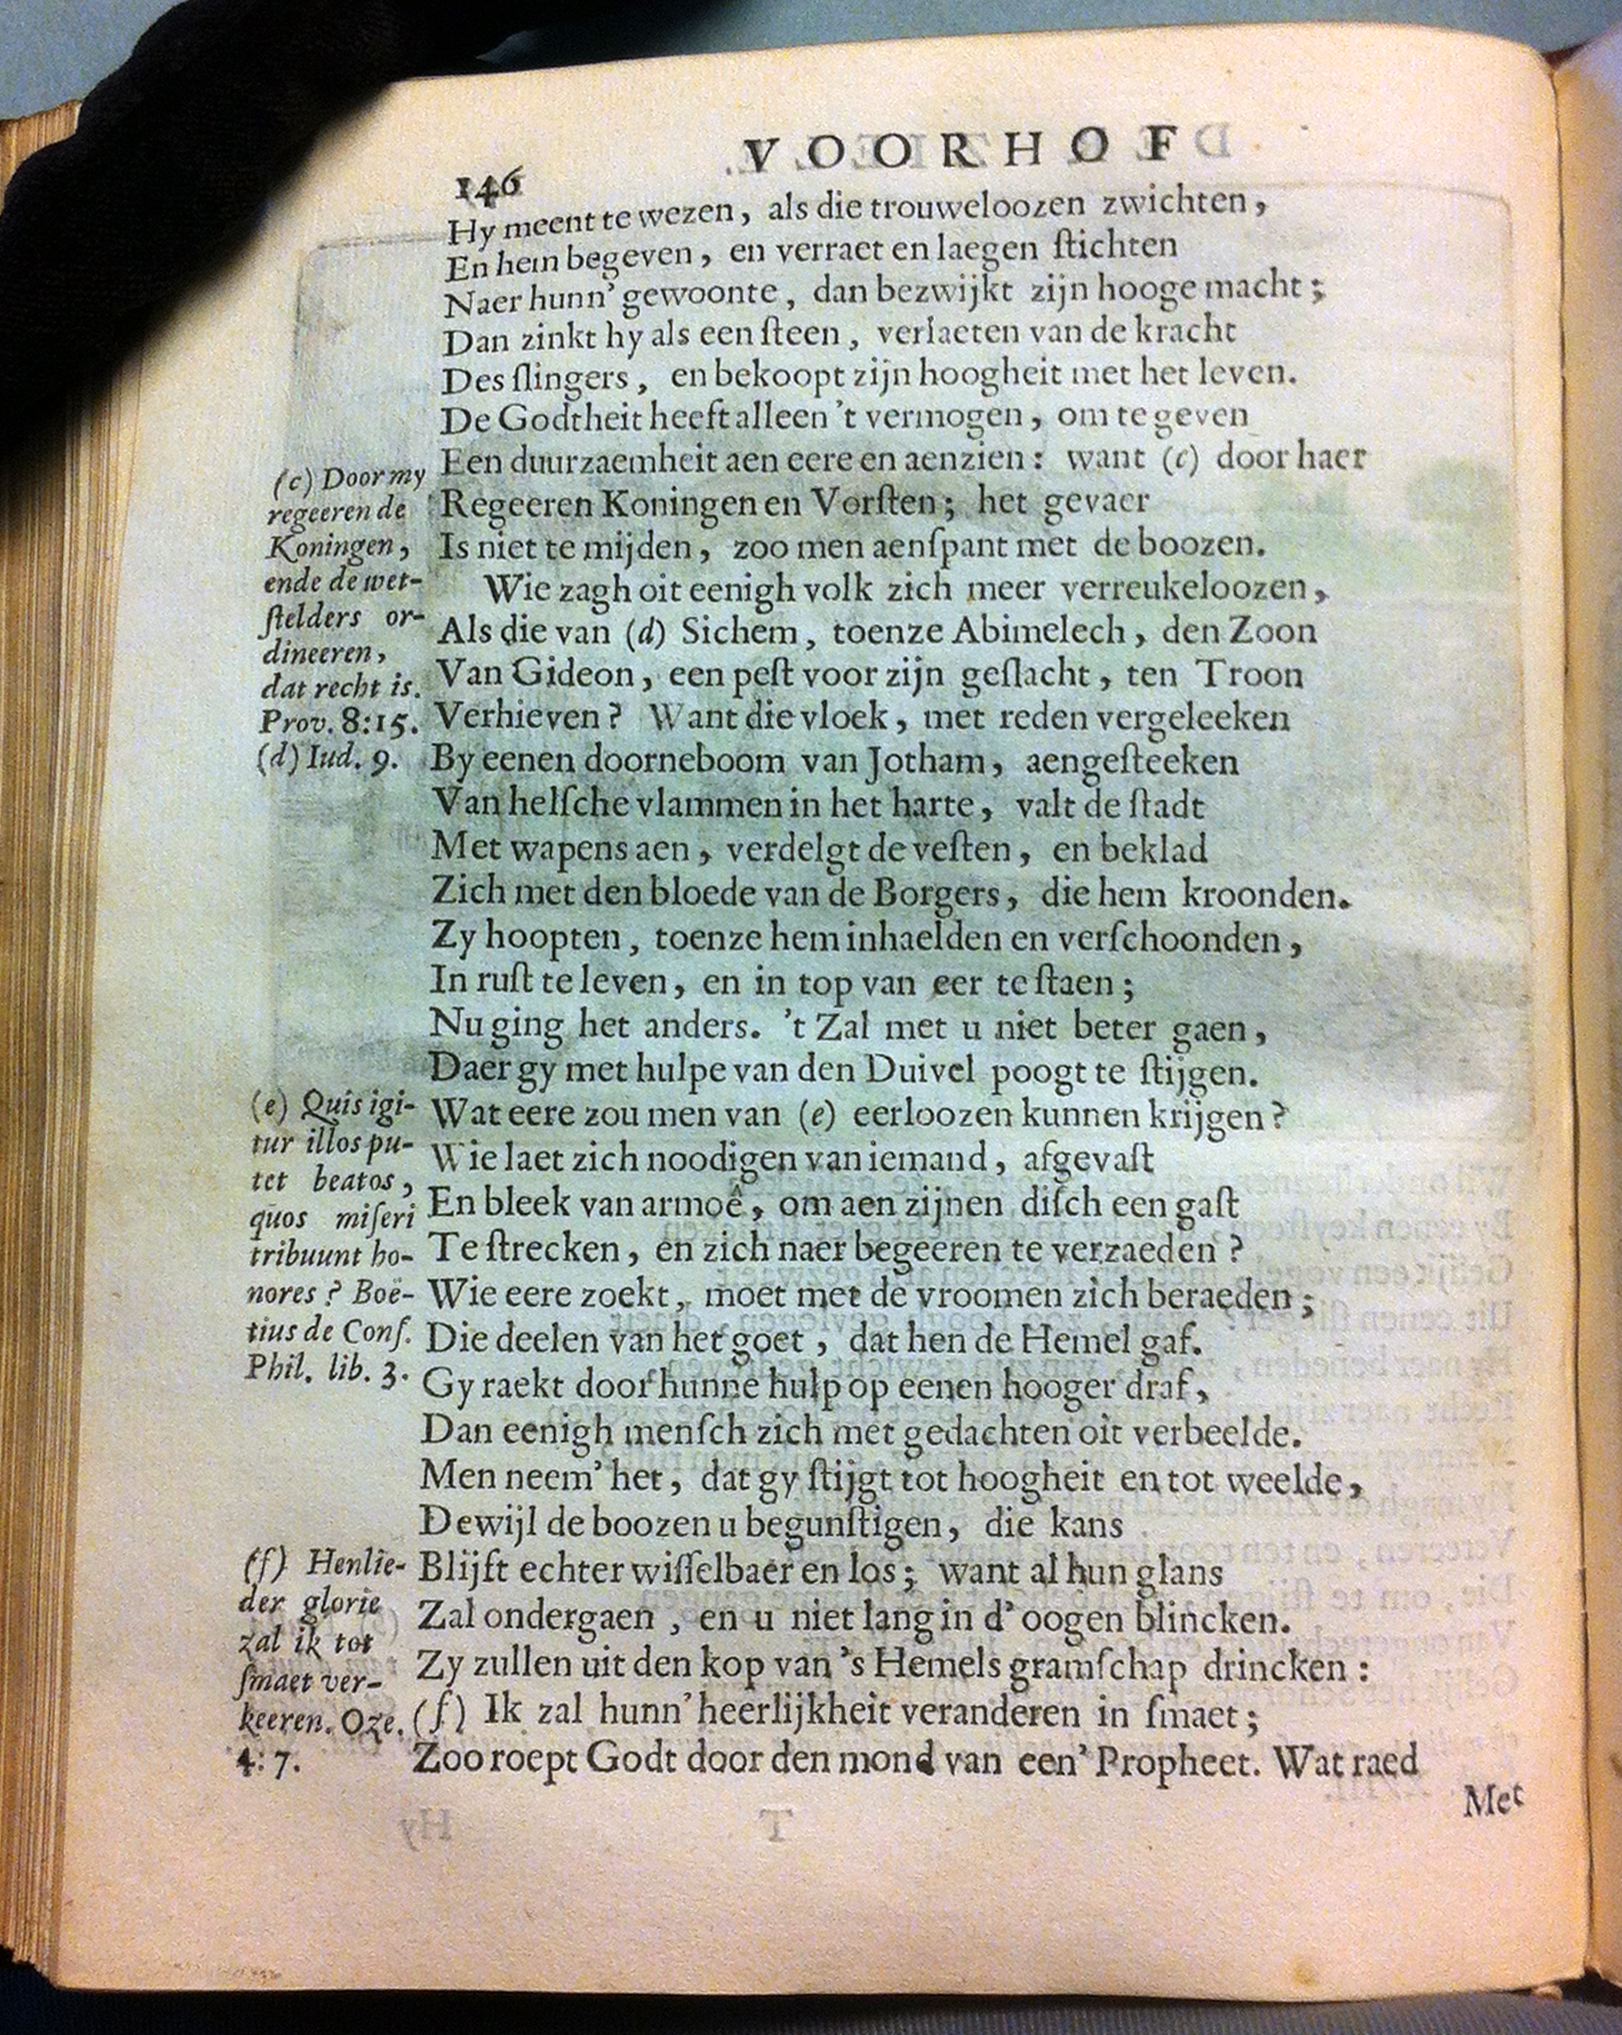 VOORHOF
146
Hy meent te wezen, als die trouweloozen zwichten,
En hem begeven, en verraet en laegen ſtichten
Naer hunn' gewoonte, dan bezwijkt zijn hooge macht;
Dan zinkt hy als een ſteen, verlaeten van de kracht
Des ſlingers, en bekoopt zijn hoogheit met het leven.
De Godtheit heeft alleen 't vermogen, om te geven
Een duurzaemheit aen eere en aenzien: want (c) door haer
Regeeren Koningen en Vorſten; het gevaer
Is niet te mijden, zoo men aenſpant met de boozen.
Wie zagh oit eenigh volk zich meer verreukeloozen,
Als die van (d) Sichem, toenze Abimelech, den Zoon
Van Gideon, een peſt voor zijn geſlacht, ten Troon
Verhieven? Want die vloek, met reden vergeleeken
By eenen doorneboom van Jotham, aengeſteeken
Van helſche vlammen in het harte, valt de ſtadt
Met wapens aen, verdelgt de veſten, en beklad
Zich met den bloede van de Borgers, die hem kroonden.
Zy hoopten, toenze hem inhaelden en verſchoonden,
In ruſt te leven, en in top van eer te ſtaen;
Nu ging het anders. 't Zal met u niet beter gaen,
Daer gy met hulpe van den Duivel poogt te ſtijgen.
Wat eere zou men van (e) eerloozen kunnen krijgen?
Wie laet zich noodigen van iemand, afgevaſt
En bleek van armoê, om aen zijnen diſch een gaſt
Te ſtrecken, en zich naer begeeren te verzaeden?
Wie eere zoekt, moet met de vroomen zich beraeden;
Die deelen van het goet, dat hen de Hemel gaf.
Gy raekt door hunne hulp op eenen hooger draf,
Dan eenigh menſch zich met gedachten oit verbeelde.
Men neem' het, dat gy ſtijgt tot hoogheit en tot weelde,
Dewijl de boozen u begunſtigen, die kans
Blijft echter wiſſelbaer en los; want al hun glans
Zal ondergaen, en u niet lang in d' oogen blincken.
Zy zullen uit den kop van 's Hemels gramſchap drincken:
(f) Ik zal hunn' heerlijkheit veranderen in ſmaet;
Zoo roept Godt door den mond van een' Propheet. Wat raed
Met
(c) Door my
regeeren de
Koningen,
ende de wet-
ſtelders or-
dineeren,
dat recht is.
Prov. 8:15.
(d) Iud. 9.
(e) Quis igi-
tur illos pu-
tet beatos,
quos miſeri
tribuunt ho-
nores? Boë-
tius de Conſ.
Phil. lib. 3.
(f) Henlie-
der glorie
zal ik tot
ſmaet ver-
keeren. Oze.
4: 7.